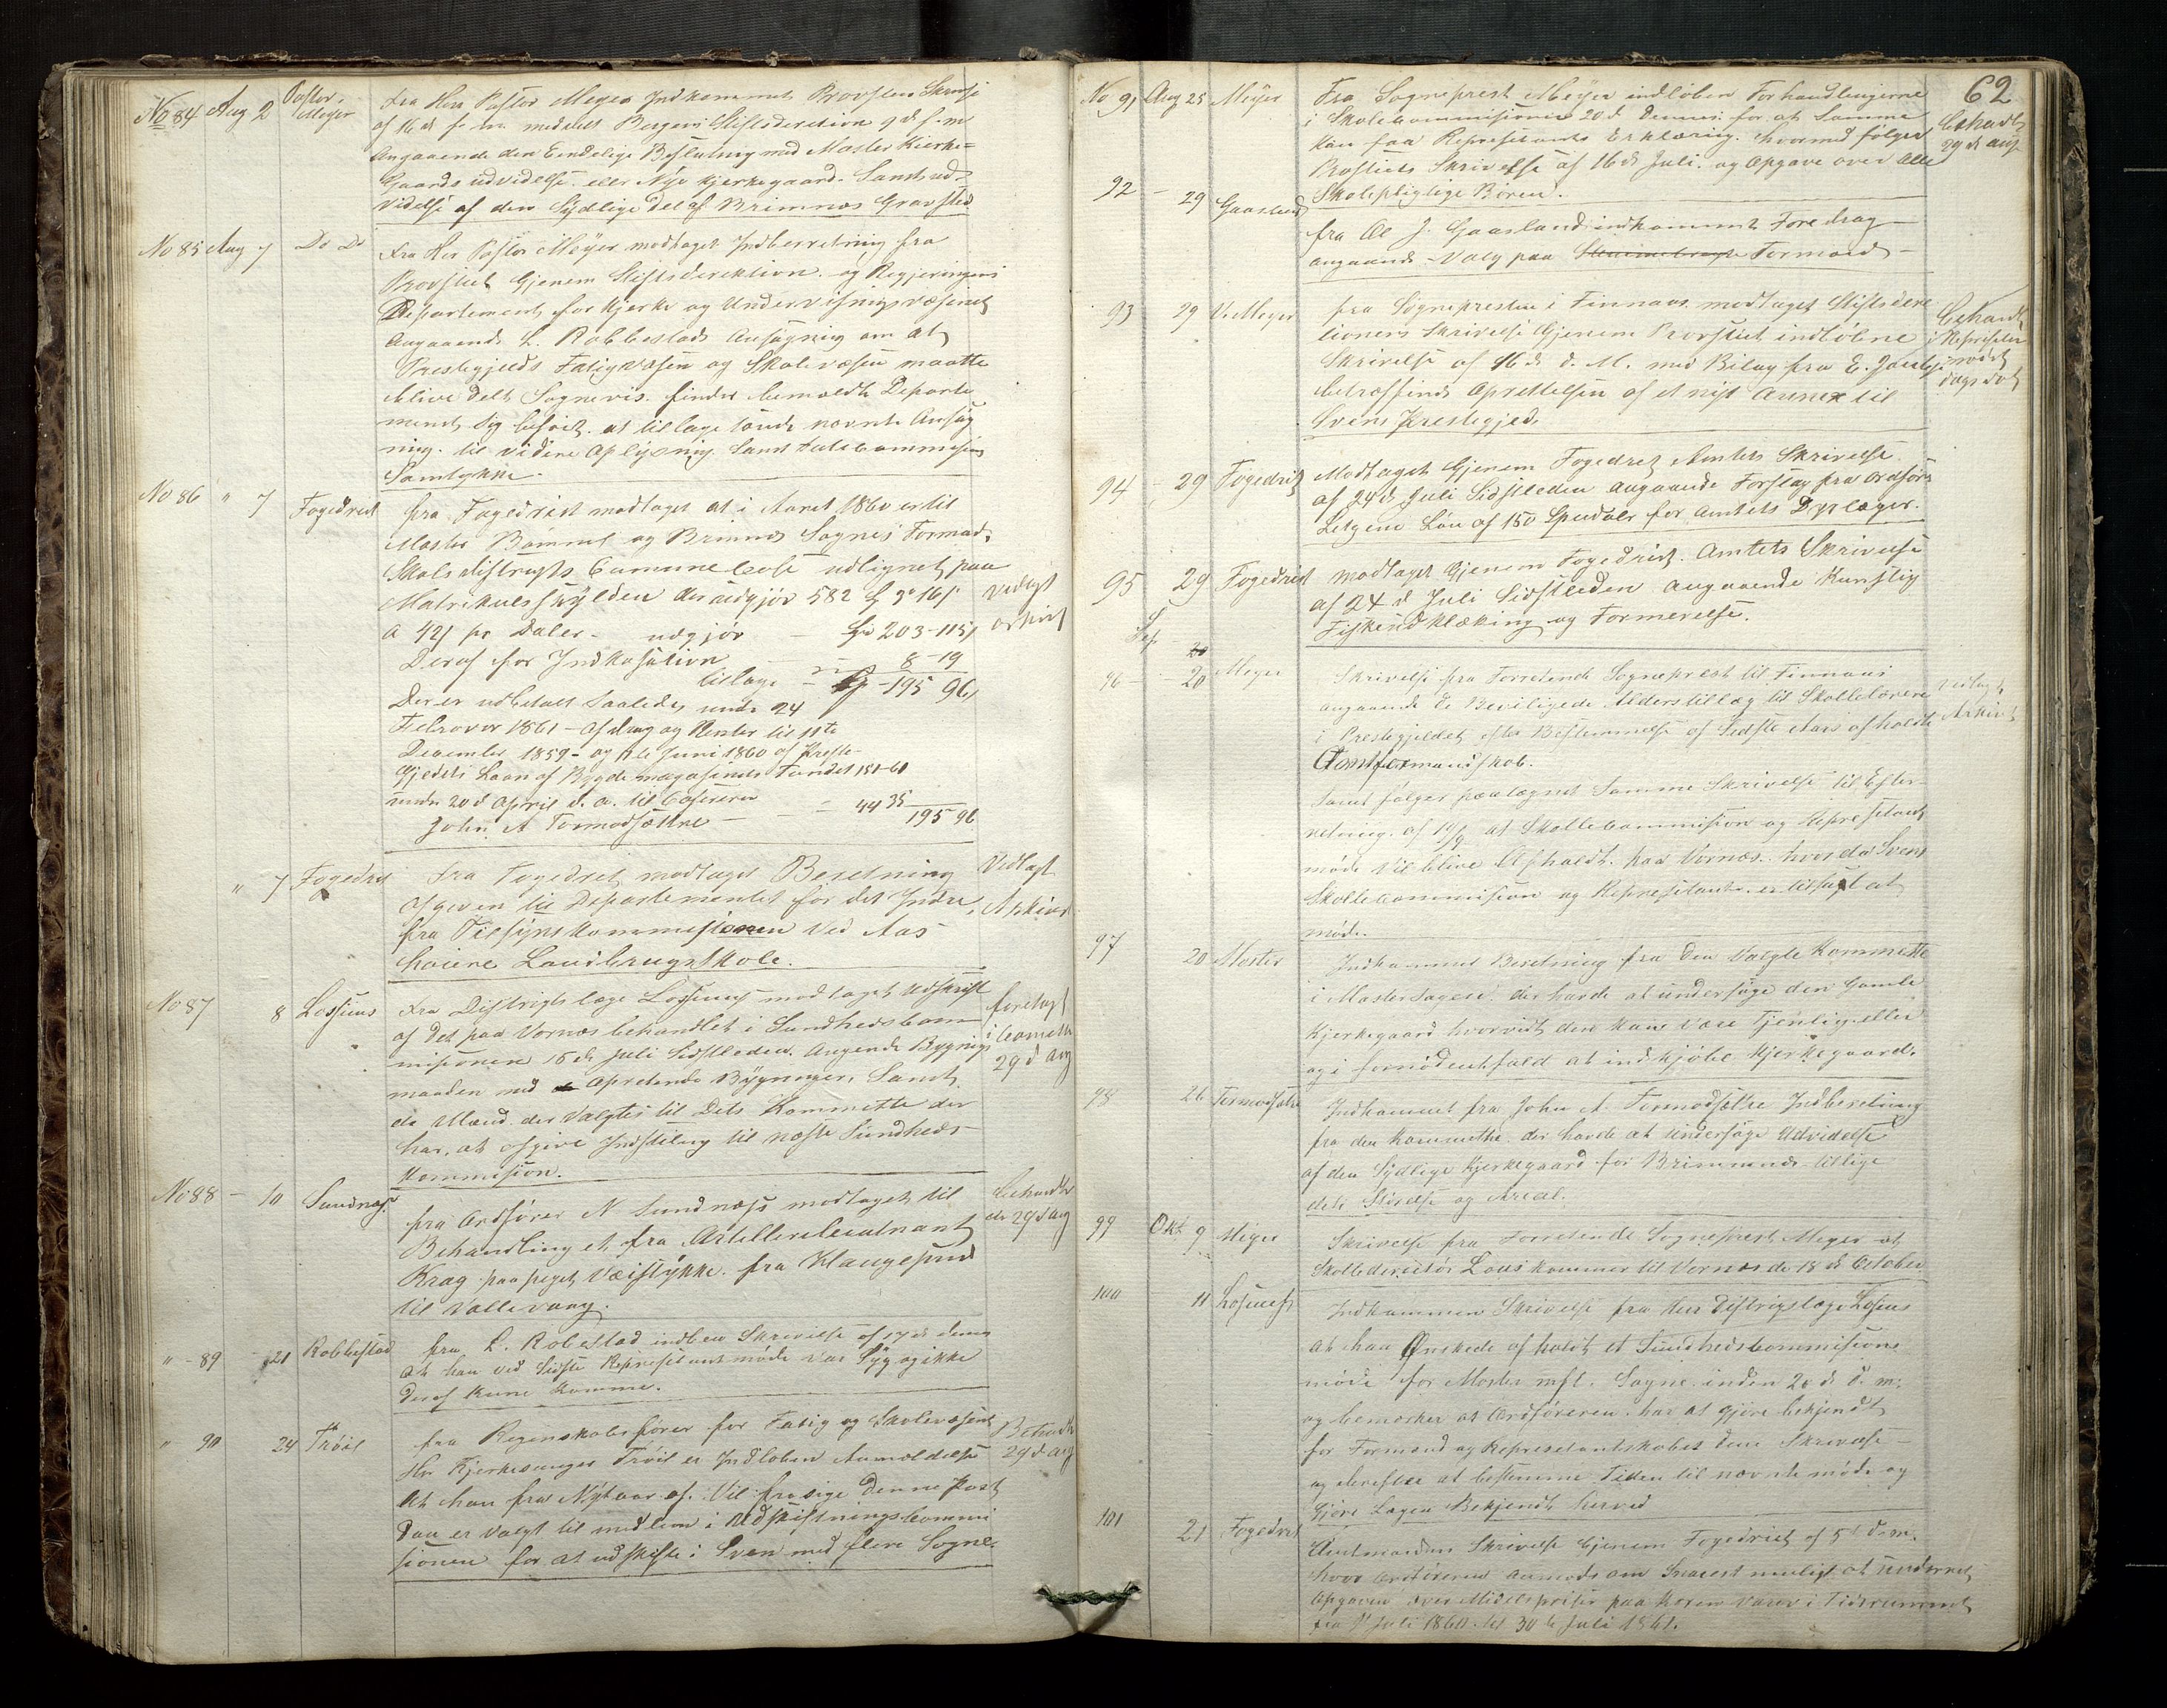 No 84 Aug 2 Pastor Meyer
Fra Herr Pastor Meyer Indkommet Provstens Skrivelse
af 16 d f. m. meddelt Bergens Stiftsdirektion 9 d f. m
Angaaende den Eendelige Beslutning med Moster Kierke=
Gaards udvidelse eller Nye Kjerkegaard. Samt ud=
videlse af den Sydlige del af Brimnæs Gravsted.
No 85 Aug 7 Do Do
Fra Her Pastor Meyer modtaget Indberretning fra
Provstiet Gjenem Stiftsdirektion og Regjeringens
Departement for Kjerke og Undervisningsvæsenet
Angaaende L. Robbestads Ansøgning om at
Prestegjelds Fatigvæsen og Skolevæsen maatte
blive delt Sognevis. finder bemældte Departe
ment sig beføiet at tilbagesende nævnte Ansøg
ning til videre Aplysning Samt
Samtykke.
No 86 " 7 Fogedriet
fra Fogedriet modtaget at i Aaret 1860 er til
Moster Bømmel og Brimnes Sognes Formand,
Skolsdistrigts Comunecasse udlignet paa
Matrikulsskylden der udgjør 582
a 42 s pr Daler - udgjør - 203-115
Deraf for Indkasation - 8-19
tilbage - 195 96
Der er udbetalt Saaledes under 24
Februar 1861 - Afdrag og Renter til 11te
December 1859 - og 11te Juni 1860 af Preste-
gjeldets Laan af Bygdemagasinets Fondet 151-61
under 20 d April d. a. til Casereren
John A Tormodsættre - - 44 35
195 96
Vedlagt
arkivet
" 7 Fogedriet
Fra Fogedriet modtaget Beretning
afgiven til Departementet for det Indre
fra Tilsynskommisionen ved Aas
høiere Landbrugsskole.
Vedlagt
Arkivet
No 87 8 Lossius
Fra Distrigtslæge Lossius modtaget Udskrift
af det paa Vornæs behandlet i Sundhedscom
misionen 16 de Juli Sidstleden. Angaende Bygnings
maaden med Apretende Bygninger, Samt
de Mænd der valgtes til Dets Kommitte der
har at afgive Indstiling til næste Sundheds
Kommision.
foretagt
i Comitte
29 d Aug
No 88 - 10 Sundnæs
fra Ordfører N Sundnæss modtaget til
Behandling et fra Artillerileiutnant
Krag paapeget Veistykke fra Haugesund
til Vallevaag.
behandlet
de 29 d Aug
" - 89 - 21 Robbestad
fra L. Robestad indløben Skrivelse af 17 d dennes
at han ved Sidste Represetantmøde var Syg og ikke
deraf kune komme.
" 90 24 Trøil
fra Regenskabsfører for Fatig og Skolevæsenet
Hr Kjerkesanger Trøil er Indløben Anmeldelse
At han fra Nytaar af. Vil frasige Denne Post
Daa er valgt til medlem i Udskiftningscommi
sionen for at udskifte i Sven med flere Sogne.
Behandlet
29 d Aug
62
No 91 Aug 25 Meyer
Fra Sogneprest Meyer indløben Forhandlingerne
i Skolecommisionen 20 d Dennes for at Samme
kan faa Represetants Erklæring. hvormed følger
Provstiets Skrivelse af 16 d Juli og Opgave over Alle
Skolepligtige Børen.
behandlet
29 d Aug
92 - 29 Gaasland
fra Ole J. Gaasland indkommet Foredrag
angaaende Valg paa Formand -
93 29 V. Meyer
fra Sognepresten i Finnaas modtaget Stiftsdirec
tionens Skrivelse Gjenem Provstiet indløbne i
Skrivelse af 16 d d. M. med Bilag fra
betræffende Oprettelsen af et nyt Annex til
Svens Prestegjed.
behandlet
94 - 29 Fogedriet
Modtaget Gjenem Fogedriet Amtets Skrivelse
af 24 d Juli Sidstleden angaaende Forslag fra
Løn af 150 Spedaler for Amtets Dyrlæger.
95 29 Fogedriet
modtaget Gjenem Fogedriet. Amtets Skrivelse
af 24 d Juli Sidstleden angaaende Kunstig
Fiskeudklæking og Formerelse.
Sep
96 - - 20 Meyer
Skrivelse fra Forretende Sogneprest til Finnaas
angaaende De Beviligede Alderstillæg til Skollelærere
i Prestegjeldet efter Bestemmelse af Sidste Aars afholdte
Amtformandskab.
Samt følger paategnet Samme Skrivelse til Efter-
retning af 14/9 at Skollecommision og Represetant
møde vil blive Afholdt paa Vornæs. hvor da Svens
Skollecommision og Represetanter er tilsagt at
møde.
Vedlagt
Arkivet
97 20 Moster
Indkommet Beretning fra den Valgte Kommitte
i Moster Sogen. der havde at undersøge den Gamle
Kjerkegaard hvorvidt den kan Være Tjenlig eller
og i fornødentfald at indkjøbe Kjerkegaard.
98 26 Tormodsætre
Indkommet fra John A. Tormodsættre Indberetning
fra den Kommitte der havde at undersøge Udvidelse
af den Sydlige Kjerkegaard for Brimmnæs tillige
dets Størelse og Areal.
99 Okt 9 Meyer
Skrivelse fra Forretende Sogneprest Meyer at
Skolledirectør Lous kommer til Vornæs de 18 d October
100 11 Losiuess
Indkommen Skrivelse fra Herr Distrigslæge Losius
at haa Ønskede afholdt et Sundhedscommisions
møde for Moster mfl. Sogne inden 20 d d. m.
og bemærker at Ordføreren har at gjøre bekjendt
for Formand og Represetantskabet dene Skrivelse
og derefter at bestemme Tiden til nævnte møde og
Gjøre Lægen Bekjendt herved
101 21 Fogedriet
Amtmandens Skrivelse Gjenem Fogedriet af 5 d d. m.
hvor Ordføreren anmodes om Snarest muligt at underrett
Opgaven over Midelspriser paa Koren varer i Tidsrummet
fra 1 Juli 1860 til 30 te Juli 1861.